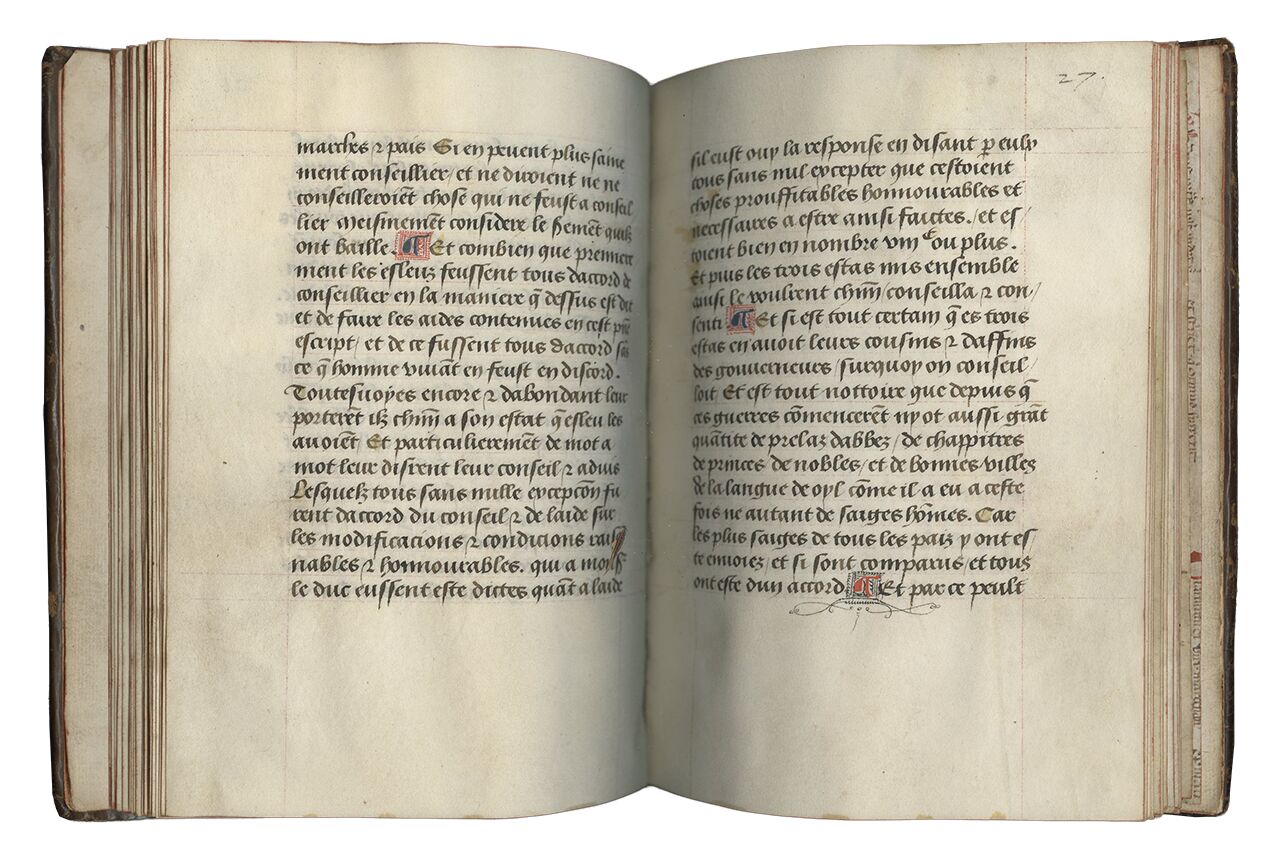 marches ⁊ pais Si en peuent plus saine
ment conseillier, et ne duroient ne ne
conseilleroiēt chose qui ne feust a conseil
lier Meismemēt considere le ꝑemēt quilz
ont baille. Et combien que premiere
ment les esleuz feussent tous daccord de
conseillier en la maniere q̄ dessus est dit
et de faire les aides contenues en cest
escript, et de ce fussent tous daccord sās
ce q̄ homme viuāt en feust en discord.
Toutesuoyes encore ⁊ dabondant leur
porterēt ilz chūn a son estat q̄ esleu les
auoiēt Et particulieremēt de mot a
mot leur disrent leur conseil, ⁊ aduis
Lesquelz tous sans nulle excepcōn fu
rent daccord du conseil ⁊ de laide sur
les modificacions ⁊ condicions raisō
nables ⁊ honnourables. qui a monsr
le duc eussent este dictes quāt a laide
27.
sil eust ouy la response en disant p eulx
tous sans nul excepter que cestoient
choses prouffitables honnourables et
necessaires a estre ainsi faictes. et es/
toient bien en nombre viii c ou plus.
Et puis les trois estas mis ensemble
ainsi le voulrent chūn/ conseilla ⁊ con/
senti Et si est tout certain q̄ es trois
estas en auoit leurs cousins ⁊ daffins
des gouuerneurs/ surquoy on conseil/
loit Et est tout nottoire que depuis q̄
ces guerres cōmencerēt ny ot aussi grāt
quātite de prelaz dabbez/ de chappitres
de princes de nobles/ et de bonnes villes
de la langue de oyl cōme il a eu a ceste
fois ne autant de saiges hōmes. Car
les plus saiges de tous les paiz y ont es/
te enuoiez, et si sont comparus, et tous
ont este dun accord Et par ce peult